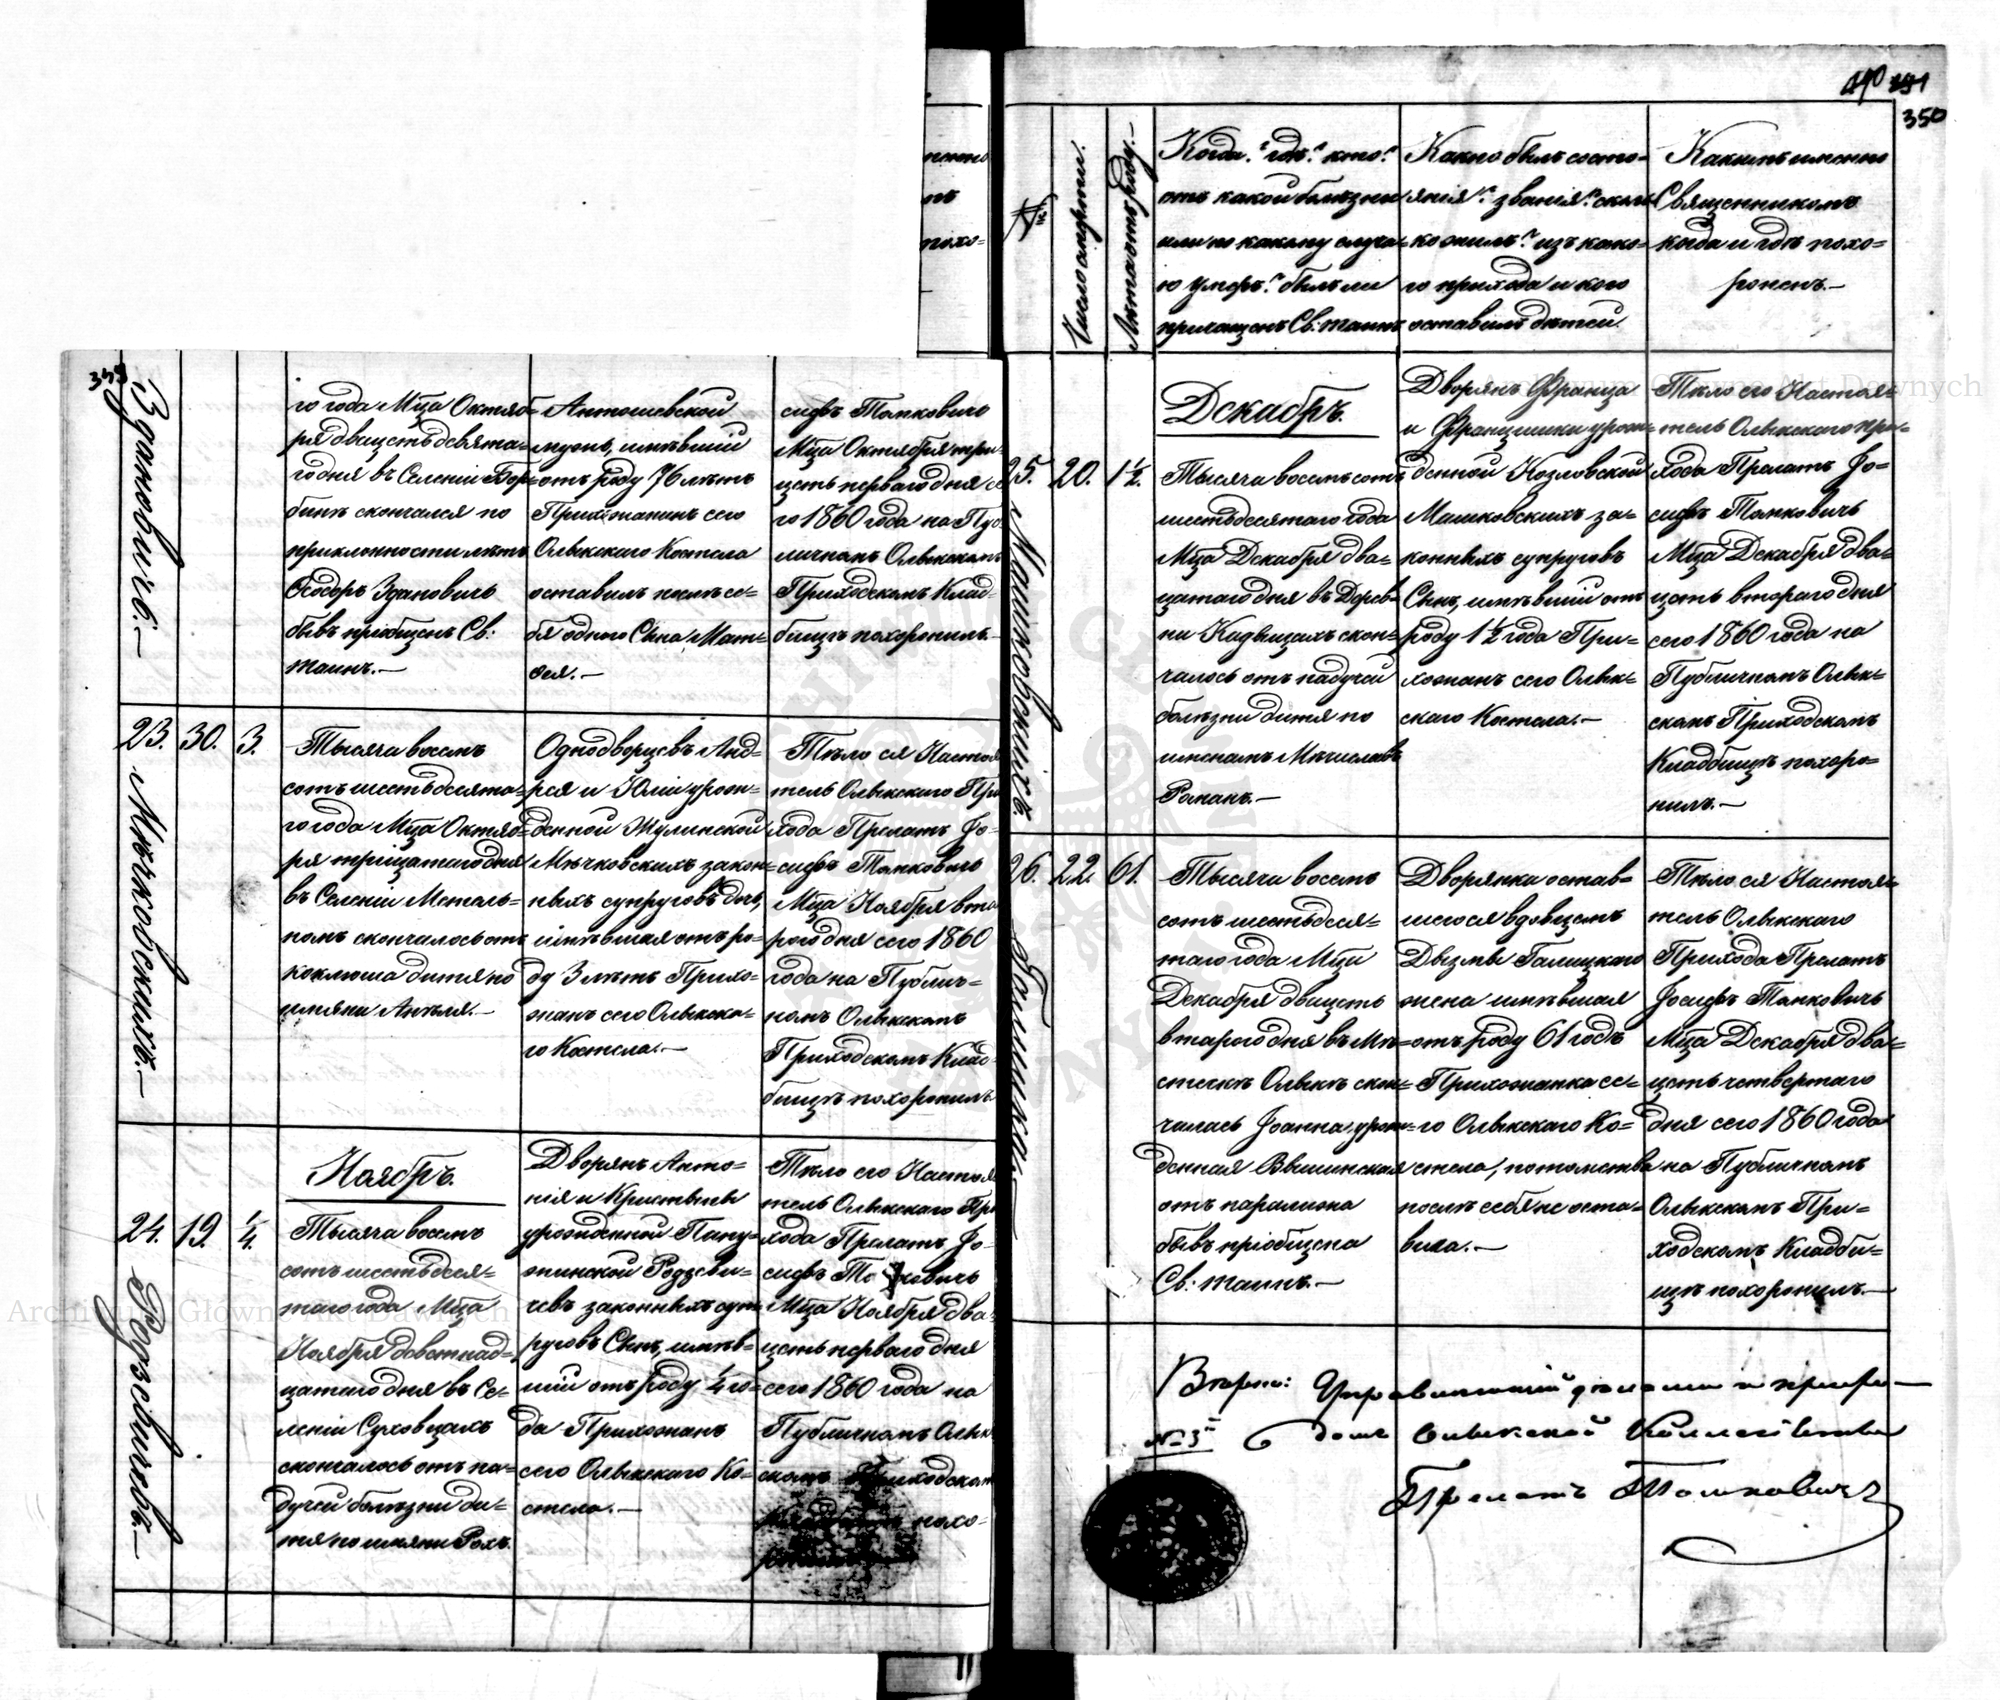 349
Здановичъ.—
го года Мца Октяб=
ря двацеть девята=
го дня въ Селеніи Бор=
бинъ скончался по
приклонности лѣтъ
Ѳеодоръ Здановичь
бывъ пріобщенъ Св:
таинъ.—
Антошевской
мужъ, имѣвшій
отъ роду 76 лѣтъ
Прихожанинъ сего
Олыкскаго Костела
оставилъ послѣ се=
бя одного Сына Мат=
ѳея.—
сифъ Томковичь
Мца Октября три=
цеть перваго дня се
го 1860 года на Пуб
личномъ Олыкскомъ
Приходскомъ Клад=
бищѣ похоронилъ.—
23. 30. 3.
Мѣчковскихъ.—
Тысяча восемъ
сотъ шестьдесята=
го года Мца Октяб=
ря тріцатаго дня
въ Селеніи Метель=
номъ скончалось отъ
коклюша дитя по
имяни Анѣля.—
Однодворцевъ Анд=
рея и Юліи урож=
денной Жулинской
Мѣчковскихъ закон=
ныхъ супруговъ дочь,
имѣвшая отъ ро=
ду 3 лѣтъ Прихо=
жанъ сего Олыкска=
го Костела.—
Тѣло ея Настоя
тель Олыкского При
хода Прелатъ Іо=
сифъ Томковичь
Мца Ноября вто
рого дня сего 1860
года на Публич=
номъ Олыкскомъ
Приходскомъ Клад=
бищѣ похоронилъ
Ноябрь.
24. 19. 1/4.
Родзевичевъ.—
Тысяча восемъ
сотъ шестьдеся=
таго года Мца
Ноября деветнад=
цатаго дня въ Се=
леніи Суховцахъ
скончалось отъ па=
дучей болѣзни ди=
тя по имяни Рохъ.
Дворянъ Анто=
нія и Кристыны
урожденной Пану=
жинской Родзеви=
чевъ законныхъ суп
руговъ Сынъ, имѣв=
шій отъ роду 1/4 го=
да Прихожанъ
сего Олыкскаго Ко=
стела.—
Тѣло его Настоя
тель Олыкского При
хода Прелатъ Іо=
сифъ Томковичь
Мца Ноября два=
цеть перваго дня
сего 1860 года на
Публичномъ Олык
скомъ Приходском
похо=
410 191
350
№
Число смерти.
Лѣта отъ роду.—
Когда? гдѣ? кто?
отъ какой болѣзни
или по какому случа=
ю умеръ? былъ ли
причащенъ Св: таинъ
Какого былъ состо=
янія? званія? сколь
ко жилъ? изъ како=
го прихода и кого
оставилъ дѣтей.
Какимъ именно
Священникомъ
когда и гдѣ похо=
роненъ.—
Декабрь.
25. 20. 1½.
Машковскихъ.
Тысяча восемъ сотъ
шестьдесятаго года
Мца Декабря два=
цатаго дня въ Дерев
ни Кадвицахъ скон=
чалось отъ падучей
болѣзни дитя по
именамъ Мѣчиславъ
Романъ.—
Дворянъ Франца
и Францишки урож=
денной Козловской
Машковскихъ за=
конныхъ супруговъ
Сынъ, имѣвшій отъ
роду 1½ года При=
хожанъ сего Олык=
скаго Костела.—
Тѣло его Настоя=
тель Олыкскаго при=
хода Прелатъ Іо=
сифъ Томковичь
Мца Декабря два=
цеть втораго дня
сего 1860 года на
Публичномъ Олык=
скомъ Приходскомъ
Кладбищѣ похоро=
нилъ.—
26. 22. 61.
Тысяча восемъ
сотъ шестьдеся=
таго года Мца
Декабря двацеть
втарого дня въ Мѣ=
стечкѣ Олыкѣ скон=
чалась Іоанна урож=
денная Вышинская
отъ паралижа
бывъ пріобщена
Св: таинъ.—
Дворянка остав=
шегося вдовцемъ
Дызмы Галицкого
жена имѣвшая
отъ роду 61 годъ
Прихожанка се=
го Олыкскаго Ко=
стела, потомства
послѣ себя не оста=
вила.—
Тѣло ея Настоя=
тель Олыкскаго
Прихода Прелатъ
Іосифъ Томковичь
Мца Декабря два=
цеть четвертаго
дня сего 1860 года
на Публичномъ
Олыкскомъ При=
ходскомъ Кладби=
щѣ похоронилъ.—
№ 3
Прелатъ Томковичъ
Archiwum Główne Akt Dawnych
Archiwum Główne Akt Dawnych